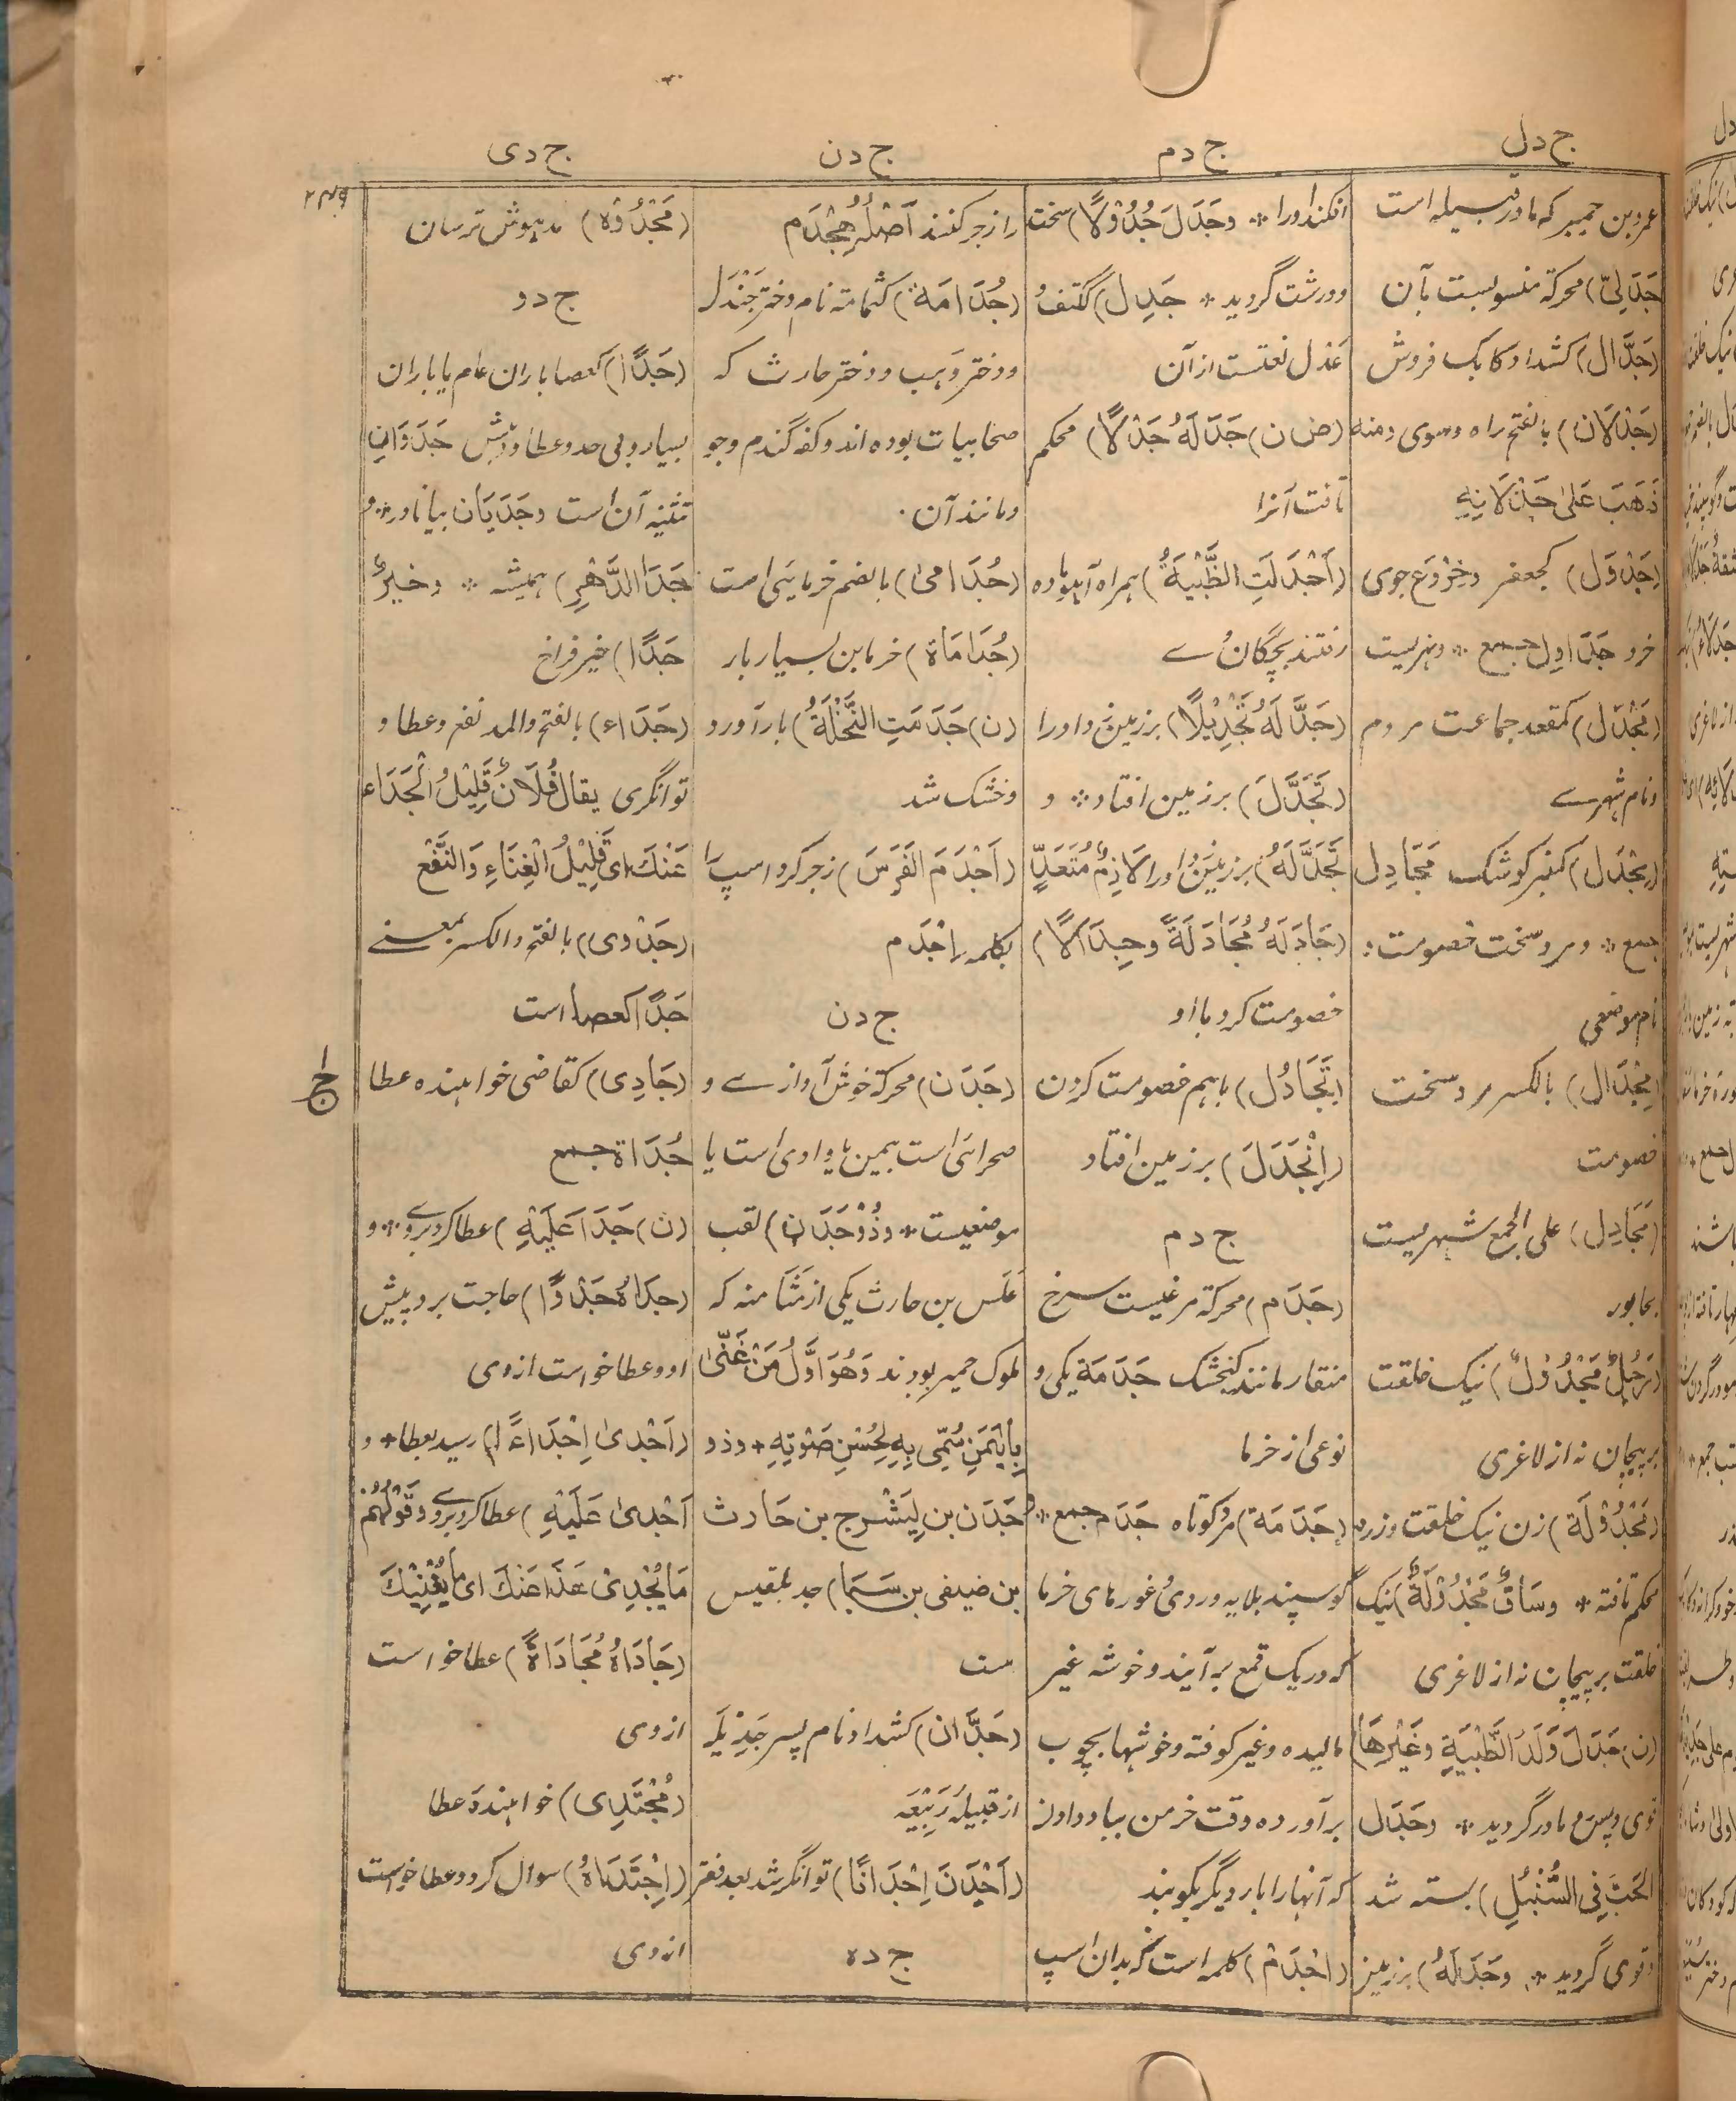 ج د ل
ج د م
ج د ن
ج د ی
عمرو بن حمیر که مادر قبیله است
جَدَلِیّ) محرکة منسوبست بآن
(جَدَّال) کشداد کابک فروش
(جَدْلَان) بالفتح راه و سوی و منه
ذَهَبَ عَلیٰ جَدْلَانِهِ
(جَدْوَل) کجعفر و خِرْوَع جوی
خرد جَدَاوِل جمع * و نهریست
(مَجْدَل) کمقعد جماعت مردم
و نام شهرے
(مِجْدَل) کمنبر کوشک مَجَادِل
جمع * و مرد سخت خصومت *
نام موضعی
(مِجْدَال) بالکسر مرد سخت
خصومت
(مَجَادِل) علی الجمع شهریست
بخابور
(رَجُلٌ مَجْدُوْلٌ) نیک خلقت
بر پیچان نه از لاغری
(مَجْدُوْلَة) زن نیک خلقت و زره
محکم تافته * وسَاقٌ مَجْدُوْلَةٌ) نیک
خلقت بر پیچان نه از لاغری
(ن) جَدَلَ وَلَدُ الظَّبْیَةِ وَغَیْرِهَا)
قوی و پس رو مادر گردید * وجَدَلَ
الحَبُّ فِی السُّنْبُلِ) بسته شد
و قوی گردید * وجَدَلَهُ) بر زمین
افکند اورا * وجَدَلَ جُدُوْلًا) سخت
و درشت گردید * جَدِل) ککتف
عَدْل نعتست ازآن
(ض ن) جَدَلَهُ جَدْلًا) محکم
تافت آنرا
(اَجْدَلَتِ الظَّبْیَةُ) همراه آهو ماده
رفتند بچگان وے
(جَدَّلَهُ تَجْدِیْلًا) بر زمین زد اورا
(تَجَدَّلَ) بر زمین افتاد * و
تَجَدَّلَهُ) بر زمین زد اورا لَازِمٌ مُتَعَدٍّ
(جَادَلَهُ مُجَادَلَةً وجِدَالًا)
خصومت کرد با او
(تَجَادُل) باهم خصومت کردن
(اِنْجَدَلَ) بر زمین افتاد
ج د م
(جَدَم) محرکة مرغیست سرخ
منقار مانند کنجشک جَدَمَة یکی و
نوعی از خرما
(جَدَمَة) مرد کوتاه جَدَم جمع * و
گوسپند بلایه و ردیٔ غورهای خرما
که در یک قمع بر آیند و خوشه غیر
مالیده و غیر کوفته و خوشها بچوب
برآورده وقت خرمن بباد دادن
که آنها را بار دیگر بکوبند
(اِجْدَمْ) کلمه است که بدان اسپ
را زجر کنند اَصْلُهُ هِجْدَم
(جُدَامَة) کثمامة نام دختر جَنْدَل
و دختر وَهَب و دختر حارث که
صحابیات بوده اند و کفه گندم و جو
و مانند آن
(جُدَامیٰ) بالضم خرمایی است
(جُدَامَاة) خرما بن بسیار بار
(ن) جَدَمَتِ النَّخْلَةُ) بار آورد و
و خشک شد
(اَجْدَمَ الفَرَسَ) زجر کرد اسپ را
بکلمه اِجْدَم
ج د ن
(جَدَن) محرکة خوش آوازے و
صحرائی است بیمن یا وادی است یا
موضعیست * وذُوْجَدَن) لقب
عَلَس بن حارث یکی از مَثَامنه که
ملوک حمیر بودند وَهُوَ اَوَّلُ مَنْ غَنّٰی
بِالیَمَنِ سُمِّی بِهِ لِحُسْنِ صَوْتِهِ * و ذو
جَدَن بن لِیَشْرَح بن حَارث
بن صَیفی بن سَبَا) جد بلقیس
ست
(جَدَّان) کشداد نام پسر جَدِیْلَه
از قبیلهٔ رَبِیْعَه
(اَجْدَنَ اِجْدَانًا) توانگر شد بعد فقر
ج د ه
(مَجْدُوْه) مدهوش ترسان
ج د و
(جَدًا) کعصا باران عام یا باران
بسیار و بی حد و عطا و بخشش جَدَوَانِ
تثنیه آن است وجَدَیَان بیا نادر * و
جَدَا الدَّهْرِ) همیشه * و خَیْرٌ
جَدًا) خیر فراخ
(جَدَاء) بالفتح والمد نفع و عطا و
توانگری یقال فُلَانٌ قَلِیْلُ الْجَدَاءِ
عَنْكَ ای قَلِیْلُ الْغِنَاءِ وَالنَّفْعِ
(جَدْوی) بالفتح و الکسر بمعنے
جَدًا کعصا است
(جَادِی) کقاضی خواهنده عطا
جُدَاة جمع
(ن) جَدَا عَلَیْهِ) عطا کرد بروے * و
(جَدَاهُ جَدْوًا) حاجت برد پیش
او و عطا خواست از وی
(اَجْدیٰ اِجْدَاءً) رسید بعطا * و
اَجْدیٰ عَلَیْهِ) عطا کرد بروے وقَوْلُهُمْ
مَا یُجْدِیْ هٰذَا عَنْكَ ای مَا یُغْنِیْكَ
(جَادَاهُ مُجَادَاةً) عطا خواست
از وی
(مُجْتَدِی) خواهندهٔ عطا
(اِجْتَدَاهُ) سوال کرد و عطا خواست
از وی
ج ا